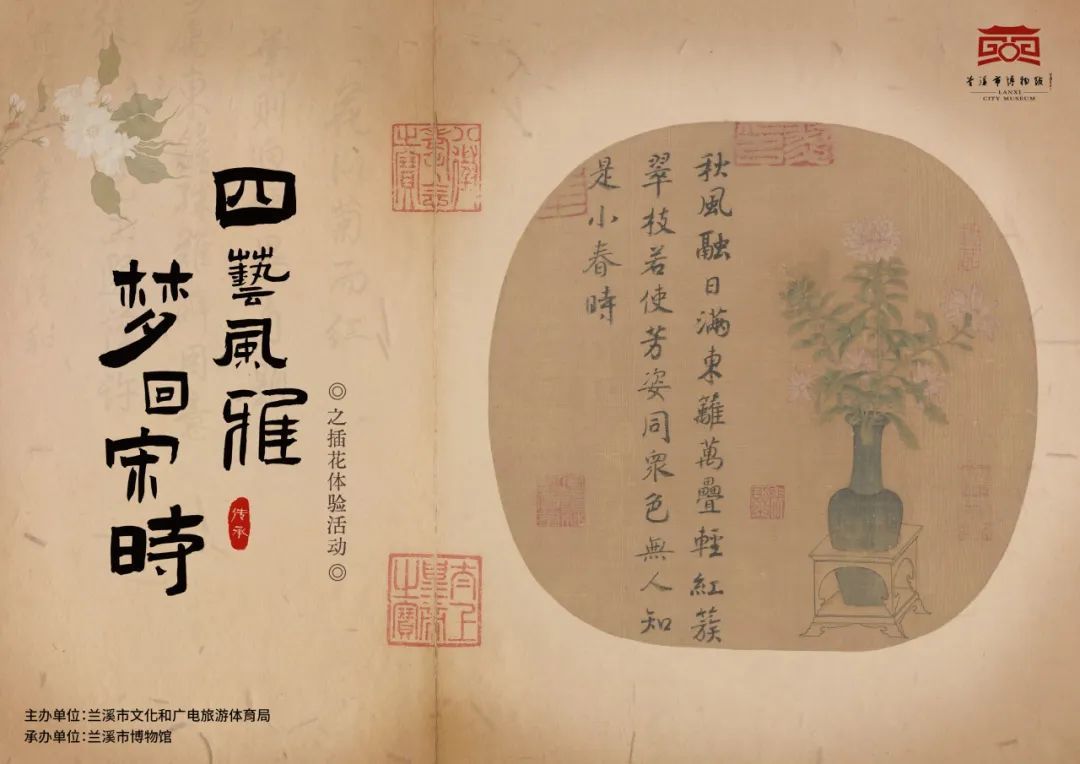 四藝風雅
梦回宋時
传承
◎之插花体验活动◎
秋風融日滿東籬萬疊輕紅簇
翠枝若使芳姿同衆色無人知
是小春時
八徵耄念之寳
太上皇帝之寳
兰溪市博物馆
LANXI
CITY MUSEUM
主办单位：兰溪市文化和广电旅游体育局
承办单位：兰溪市博物馆